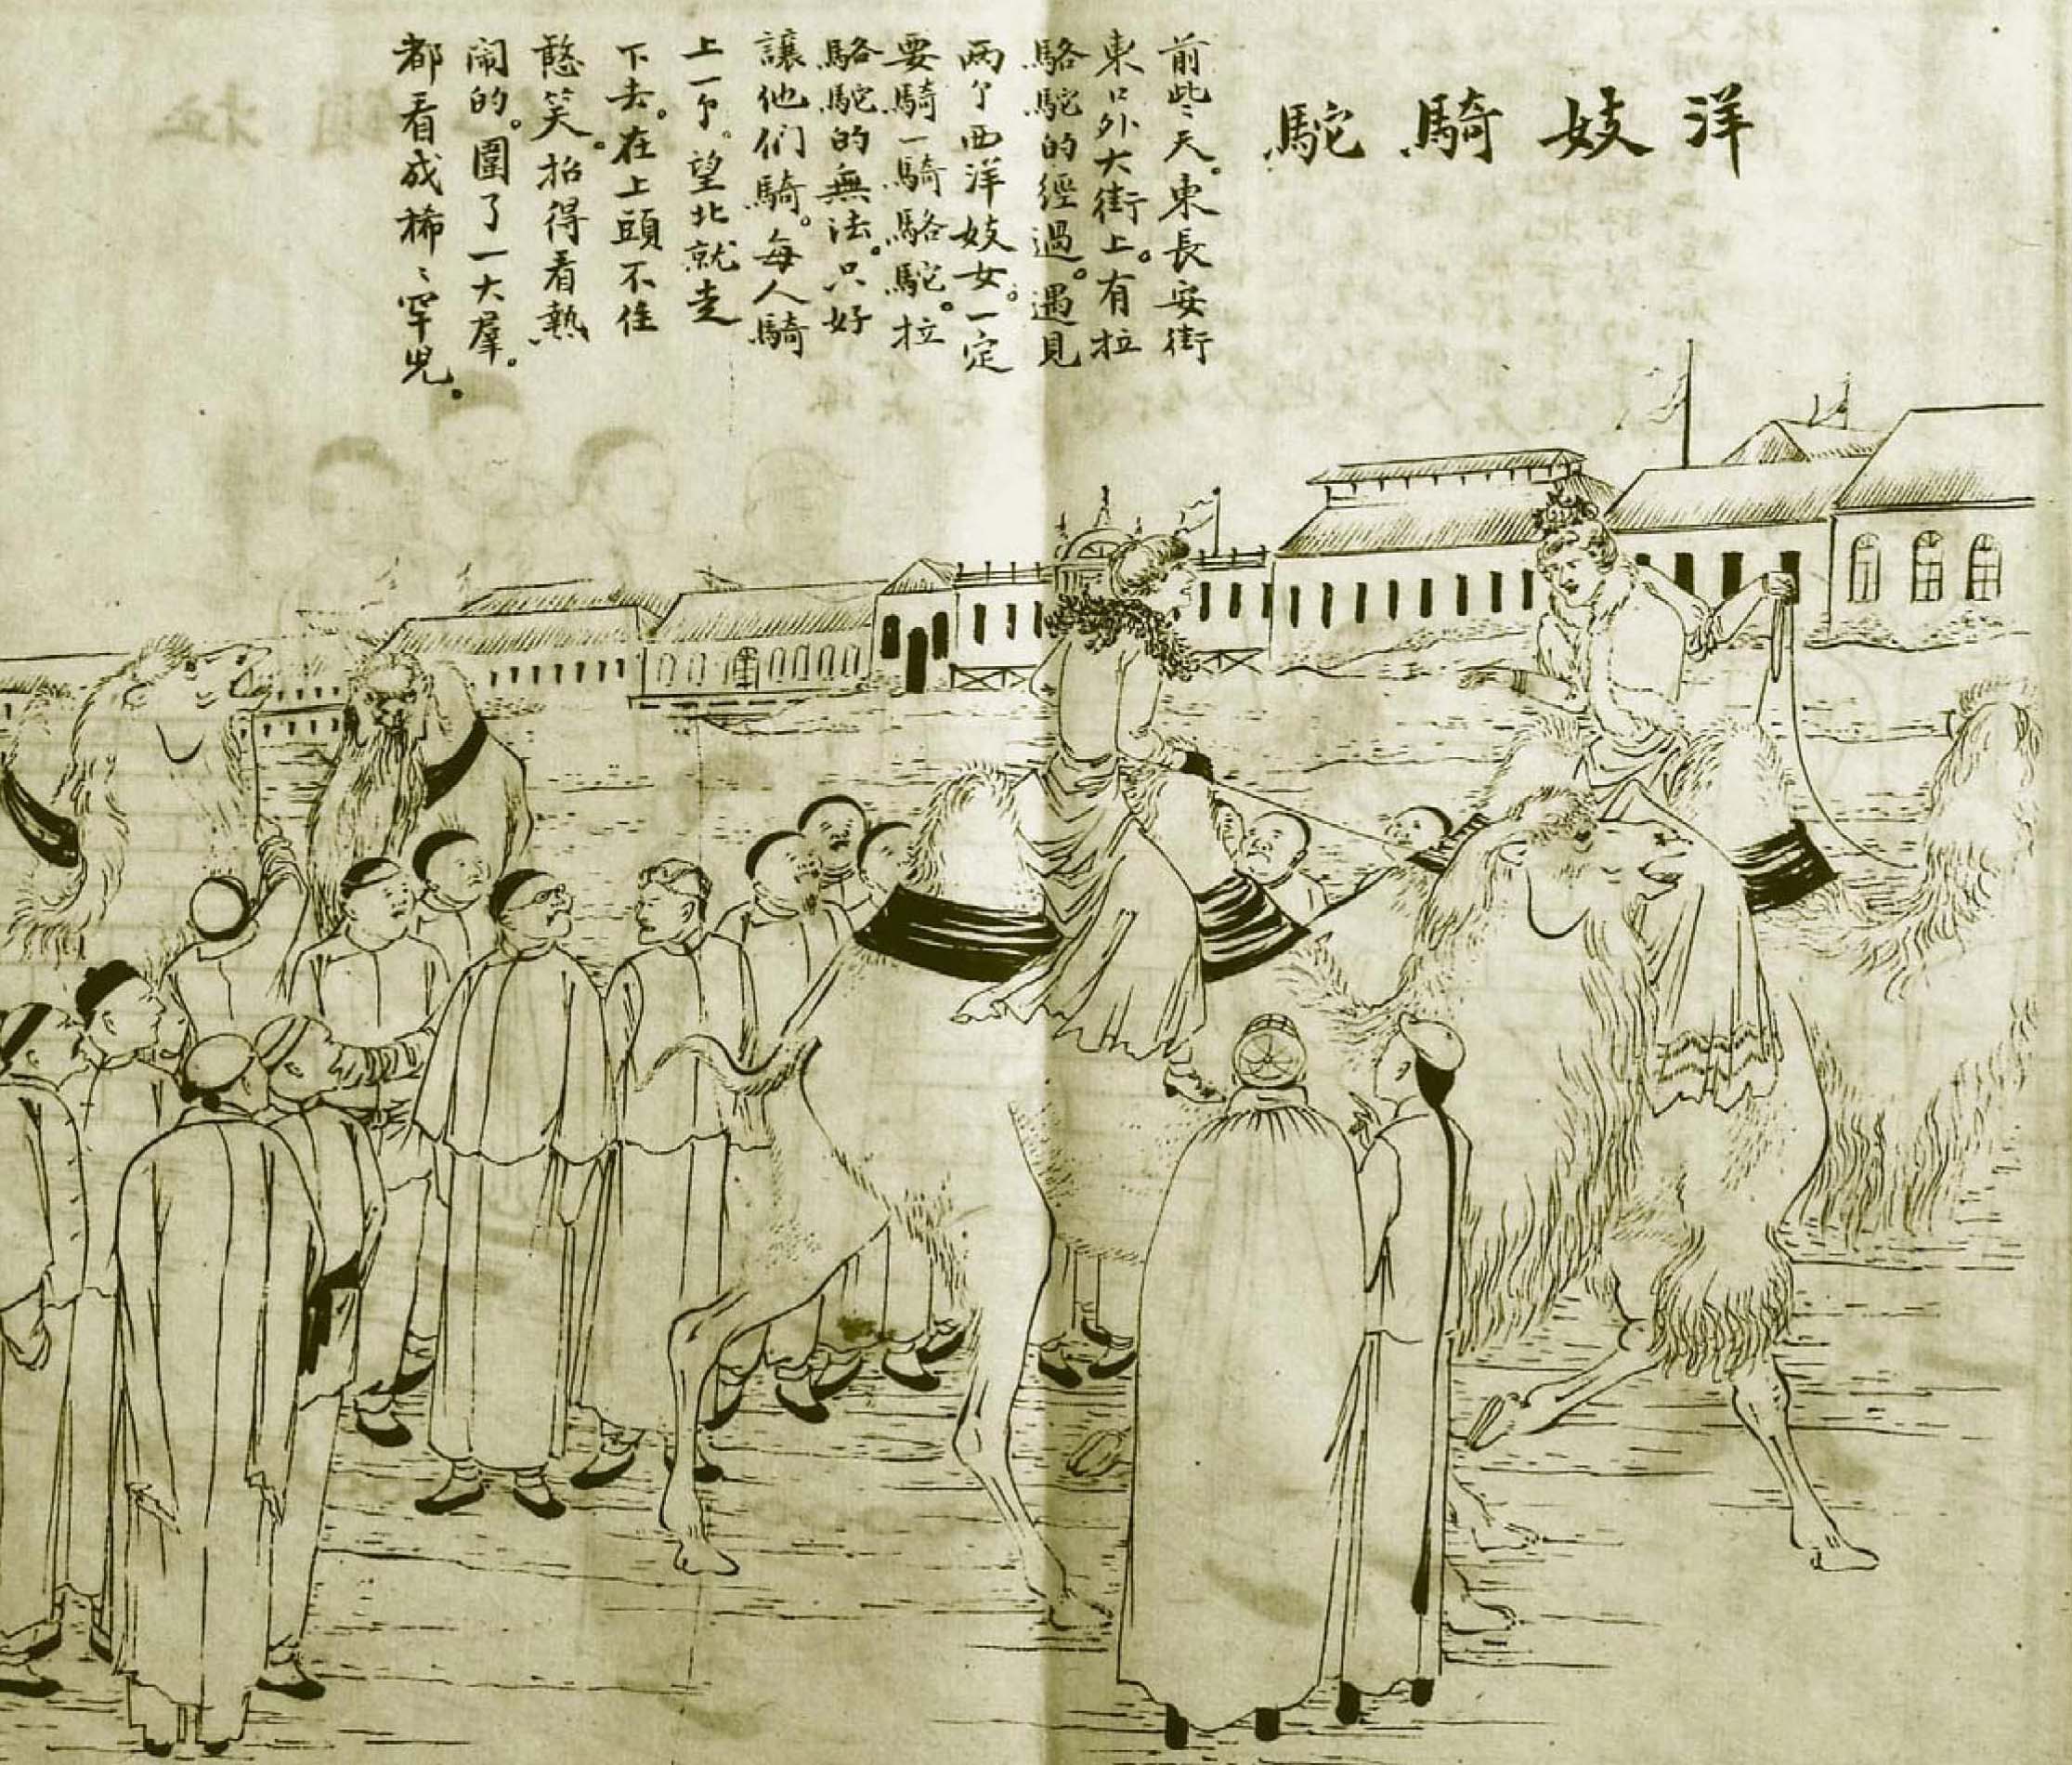 洋妓騎駝
前些天。東長安街
東口外大街上。有拉
駱駝的經過。遇見
兩个西洋妓女。一定
要騎一騎駱駝。拉
駱駝的無法。只好
讓他們騎。每人騎
上一个。望北就走
下去。在上頭不住
憨笑。招得看熱
闹的。圍了一大羣。
都看成稀〻罕兒。